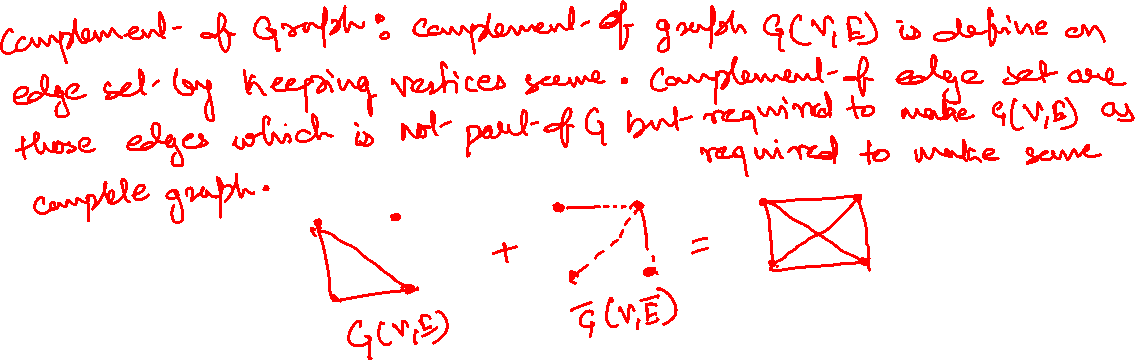 Complement of Graph: Complement of graph G(V,E) is define on
edge set by keeping vertices same. Complement of edge set are
those edges which is not part of G but required to make G(V,E) as
required to make same
complete graph.
+ =
G(V,E) G̅(V,E̅)